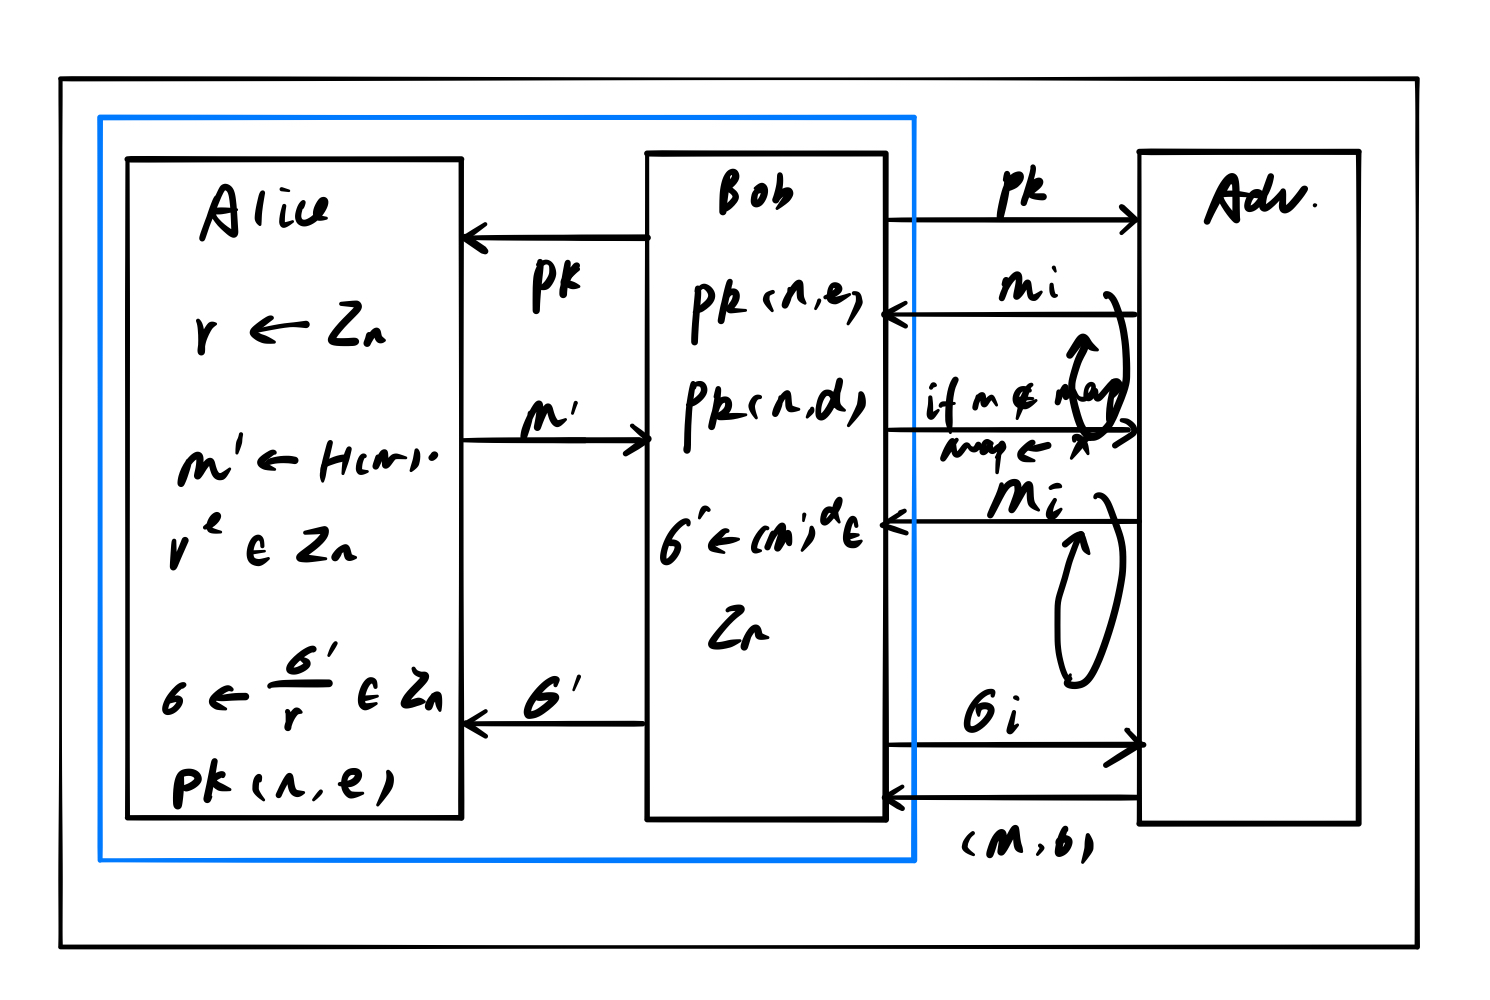 Alice
r ← Zn
m' ← H(m).
r^e ∈ Zn
σ ← σ'/r ∈ Zn
pk(n,e)
pk
m'
σ'
Bob
pk(n,e)
pk(n,d)
σ' ← (m')^d ∈
Zn
pk
mi
if m ∉ map
map ←
mi
σi
(m,σ)
Adv.